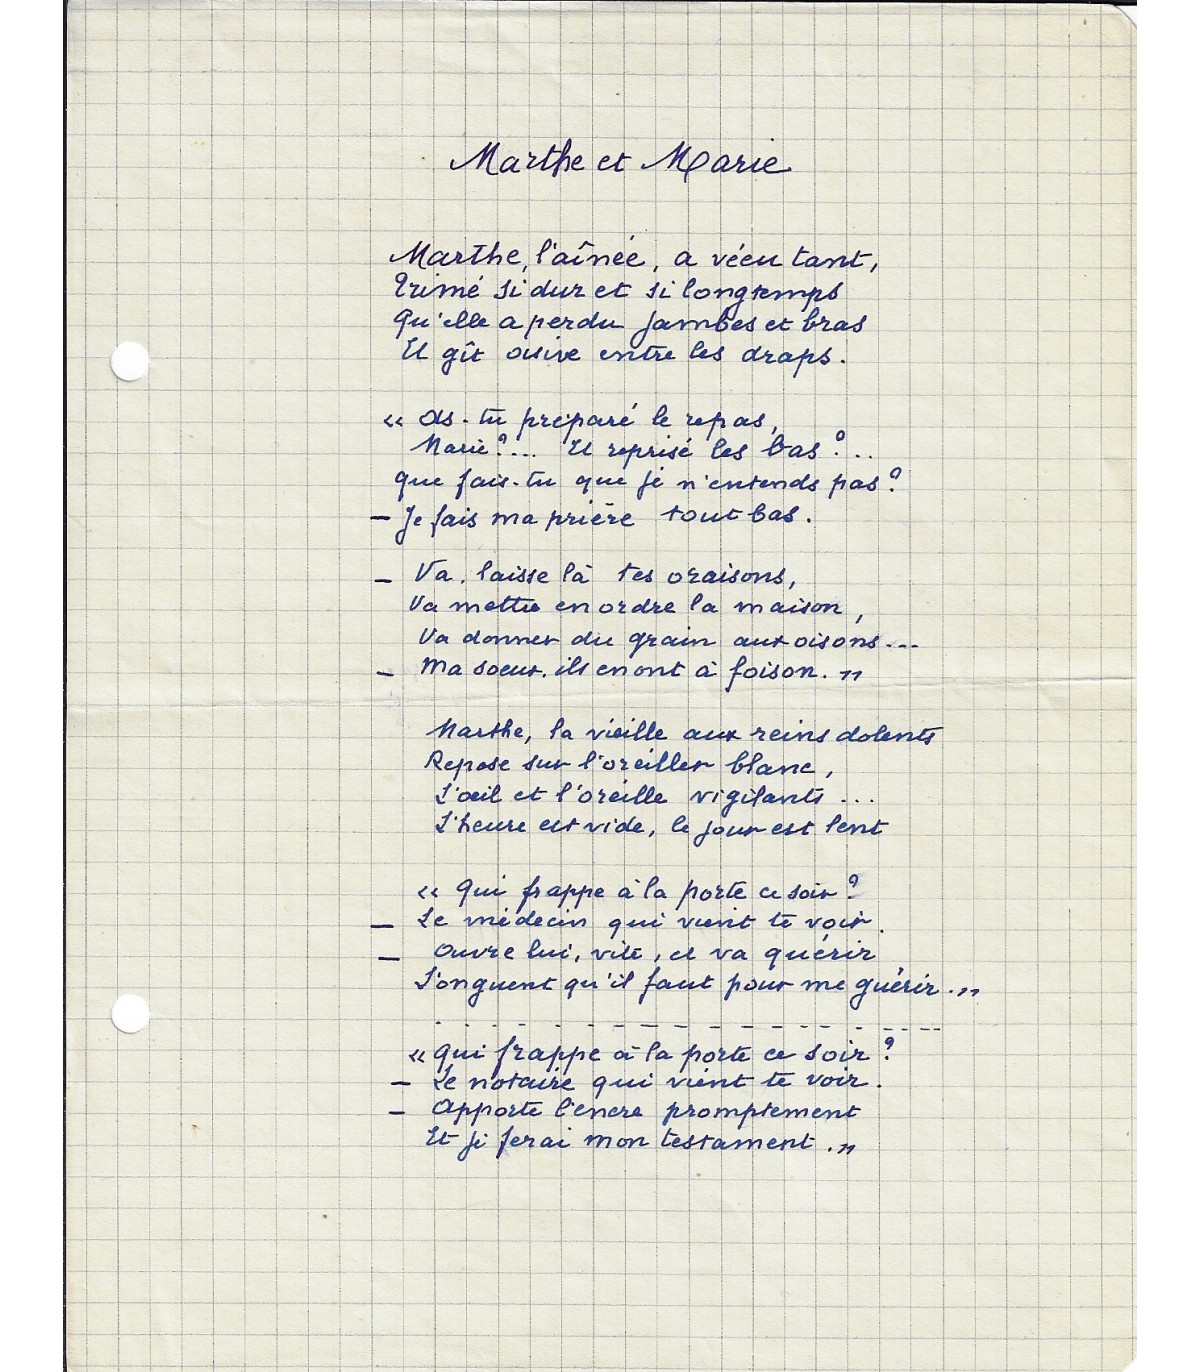 Marthe et Marie
Marthe, l'aînée, a vécu tant,
Trimé si dur et si longtemps
Qu'elle a perdu jambes et bras
Et gît oisive entre les draps.
« As-tu préparé le repas,
Marie ?... Et reprisé les bas ?..
Que fais-tu que je n'entends pas ?
– Je fais ma prière tout bas.
– Va, laisse là tes oraisons,
Va mettre en ordre la maison,
Va donner du grain aux oisons...
– Ma soeur, ils en ont à foison. »
Marthe, la vieille aux reins dolents
Repose sur l'oreiller blanc,
L'œil et l'oreille vigilants ...
L'heure est vide, le jour est lent
« Qui frappe à la porte ce soir ?
– Le médecin qui vient te voir.
– Ouvre lui, vite, et va quérir
L'onguent qu'il faut pour me guérir. »
. . . - . - - - - - - - - - - - - - -
« Qui frappe à la porte ce soir ?
– Le notaire qui vient te voir.
– Apporte l'encre promptement
Et je ferai mon testament. »